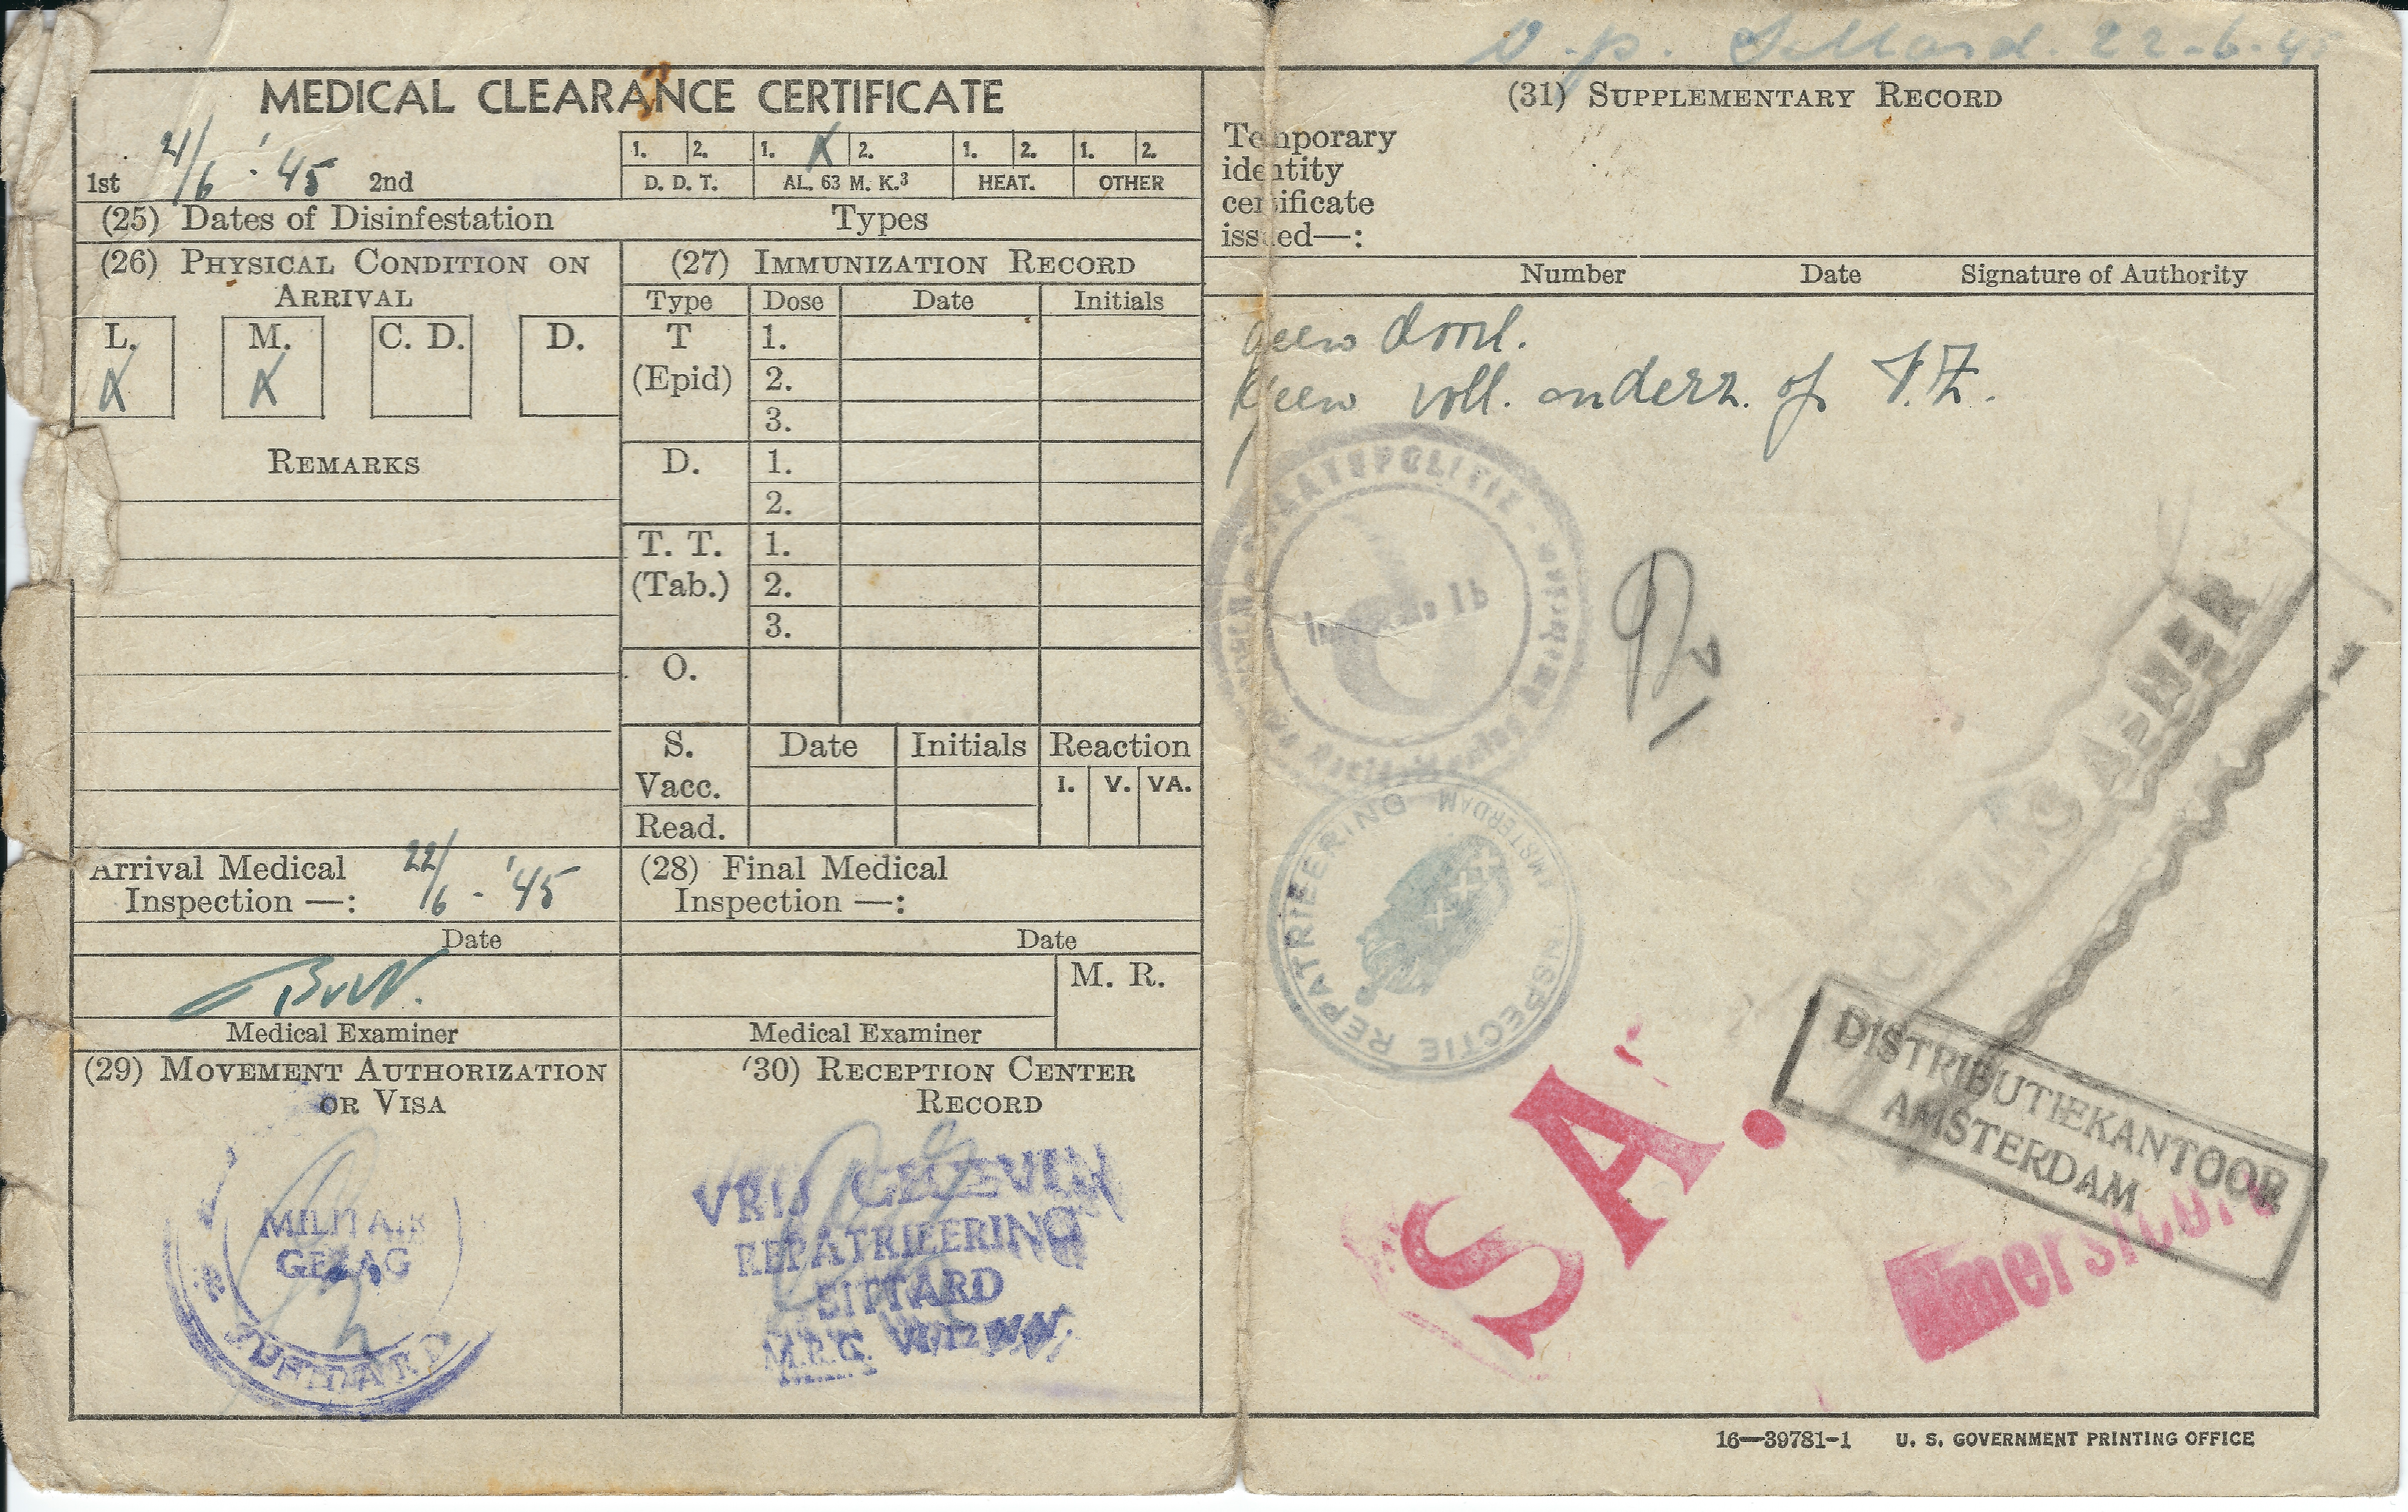 22-6-45
MEDICAL CLEARANCE CERTIFICATE
1st 21/6 '45 2nd
1. 2. 1. X 2. 1. 2. 1. 2.
D. D. T. AL. 63 M. K.3 HEAT. OTHER
(25) Dates of Disinfestation Types
(26) PHYSICAL CONDITION ON
ARRIVAL
L. M. C. D. D.
X X
REMARKS
(27) IMMUNIZATION RECORD
Type Dose Date Initials
T 1.
(Epid) 2.
3.
D. 1.
2.
T. T. 1.
(Tab.) 2.
3.
O.
S. Date Initials Reaction
Vacc. I. V. VA.
Read.
Arrival Medical
Inspection —: 22/6 - '45
Date
Medical Examiner
(28) Final Medical
Inspection —:
Date
M. R.
Medical Examiner
(29) MOVEMENT AUTHORIZATION
OR VISA
MILITAIR
GEZAG
(30) RECEPTION CENTER
RECORD
VRIJ GEGEVEN
REPATRIEERING
SITTARD
(31) SUPPLEMENTARY RECORD
Temporary
identity
certificate
issued—:
Number Date Signature of Authority
geen
geen voll. onderz. of
INSPECTIE REPATRIEERING AMSTERDAM
S.A.
DISTRIBUTIEKANTOOR
AMSTERDAM
Amersfoort
16—39781-1 U. S. GOVERNMENT PRINTING OFFICE